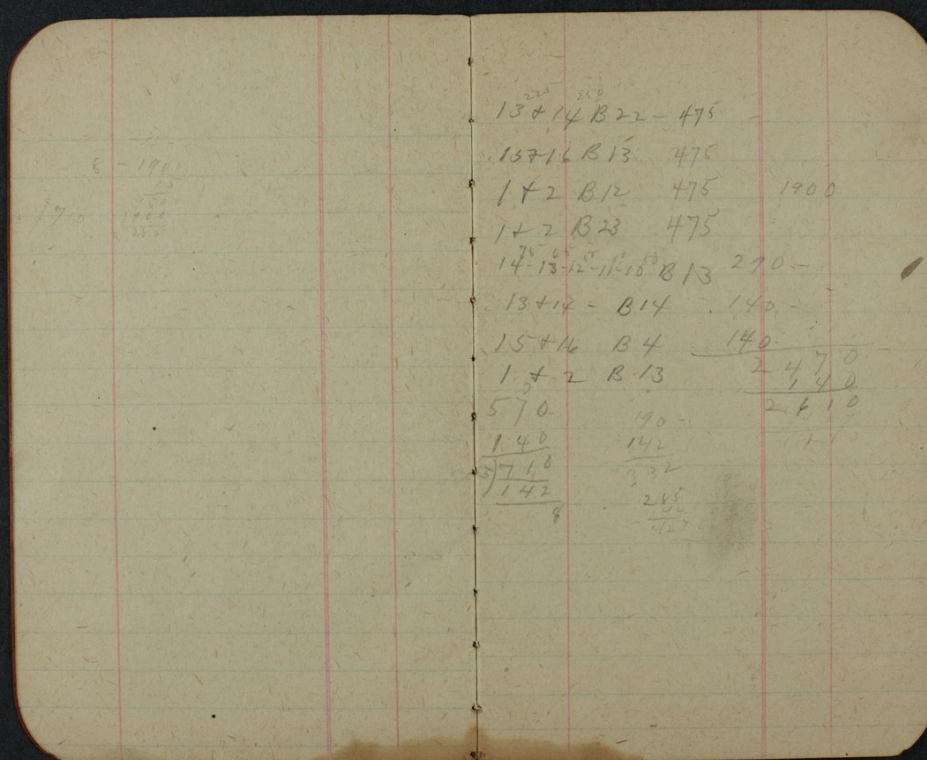 8 - 1900
225 250
13 + 14 B 22 - 475
15 + 16 B 13 475
1 + 2 B 12 475 1900
1 + 2 B 23 475
14-13-12-11-10 B 13 290 -
13 + 14 - B 14 140 -
15 + 16 B 4 140
2470
1 + 2 B 13
140
2610
570
140
5)710
142
8
190 -
142
332
285